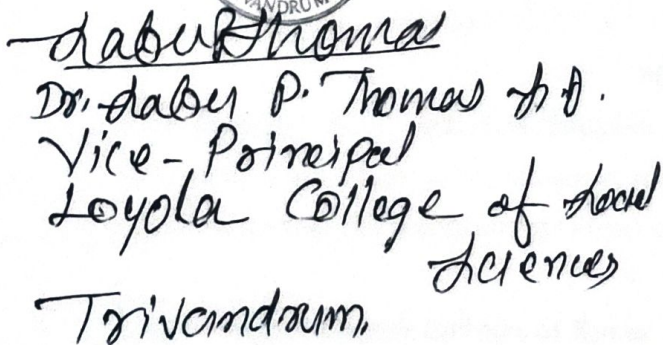 VANDRUM
Sabu P Thomas
Dr. Sabu P. Thomas S.J.
Vice-Principal
Loyola College of Social
Sciences
Trivandrum.